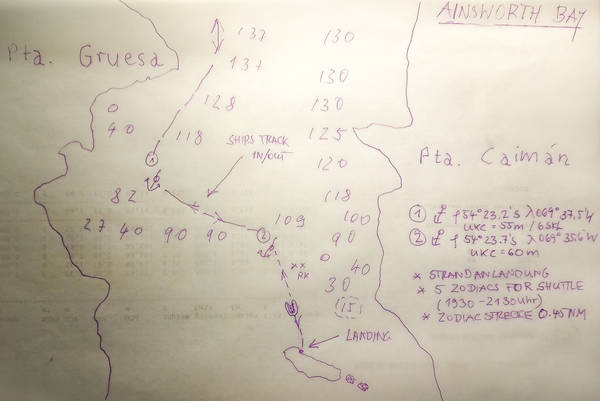 AINSWORTH BAY
Pta. Gruesa
137 130
137
130
128 130
0
40
118 125
SHIPS TRACK
IN/OUT
120
Pta. Caimán
①
82 118
27 40 90 90 109 100
② 90
0
40
xx
RK
30
15
① φ 54° 23,2's λ 069° 37,5'W
UKC = 55m /
② φ 54° 23.7's λ 069° 35.6'W
UKC = 60m
* STRANDANLANDUNG
* 5 ZODIACS FOR SHUTTLE
(1930 - 2130 Uhr)
* ZODIACSTRECKE 0.45 NM
LANDING